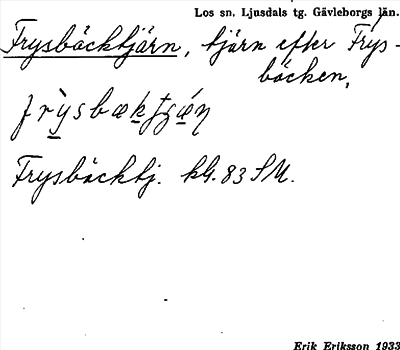 Los sn. Ljusdals tg. Gävleborgs län.
Frysbäcktjärn, tjärn efter Frys-
bäcken,
Frysbäcktj. kG. 83 SM.
Erik Eriksson 1933